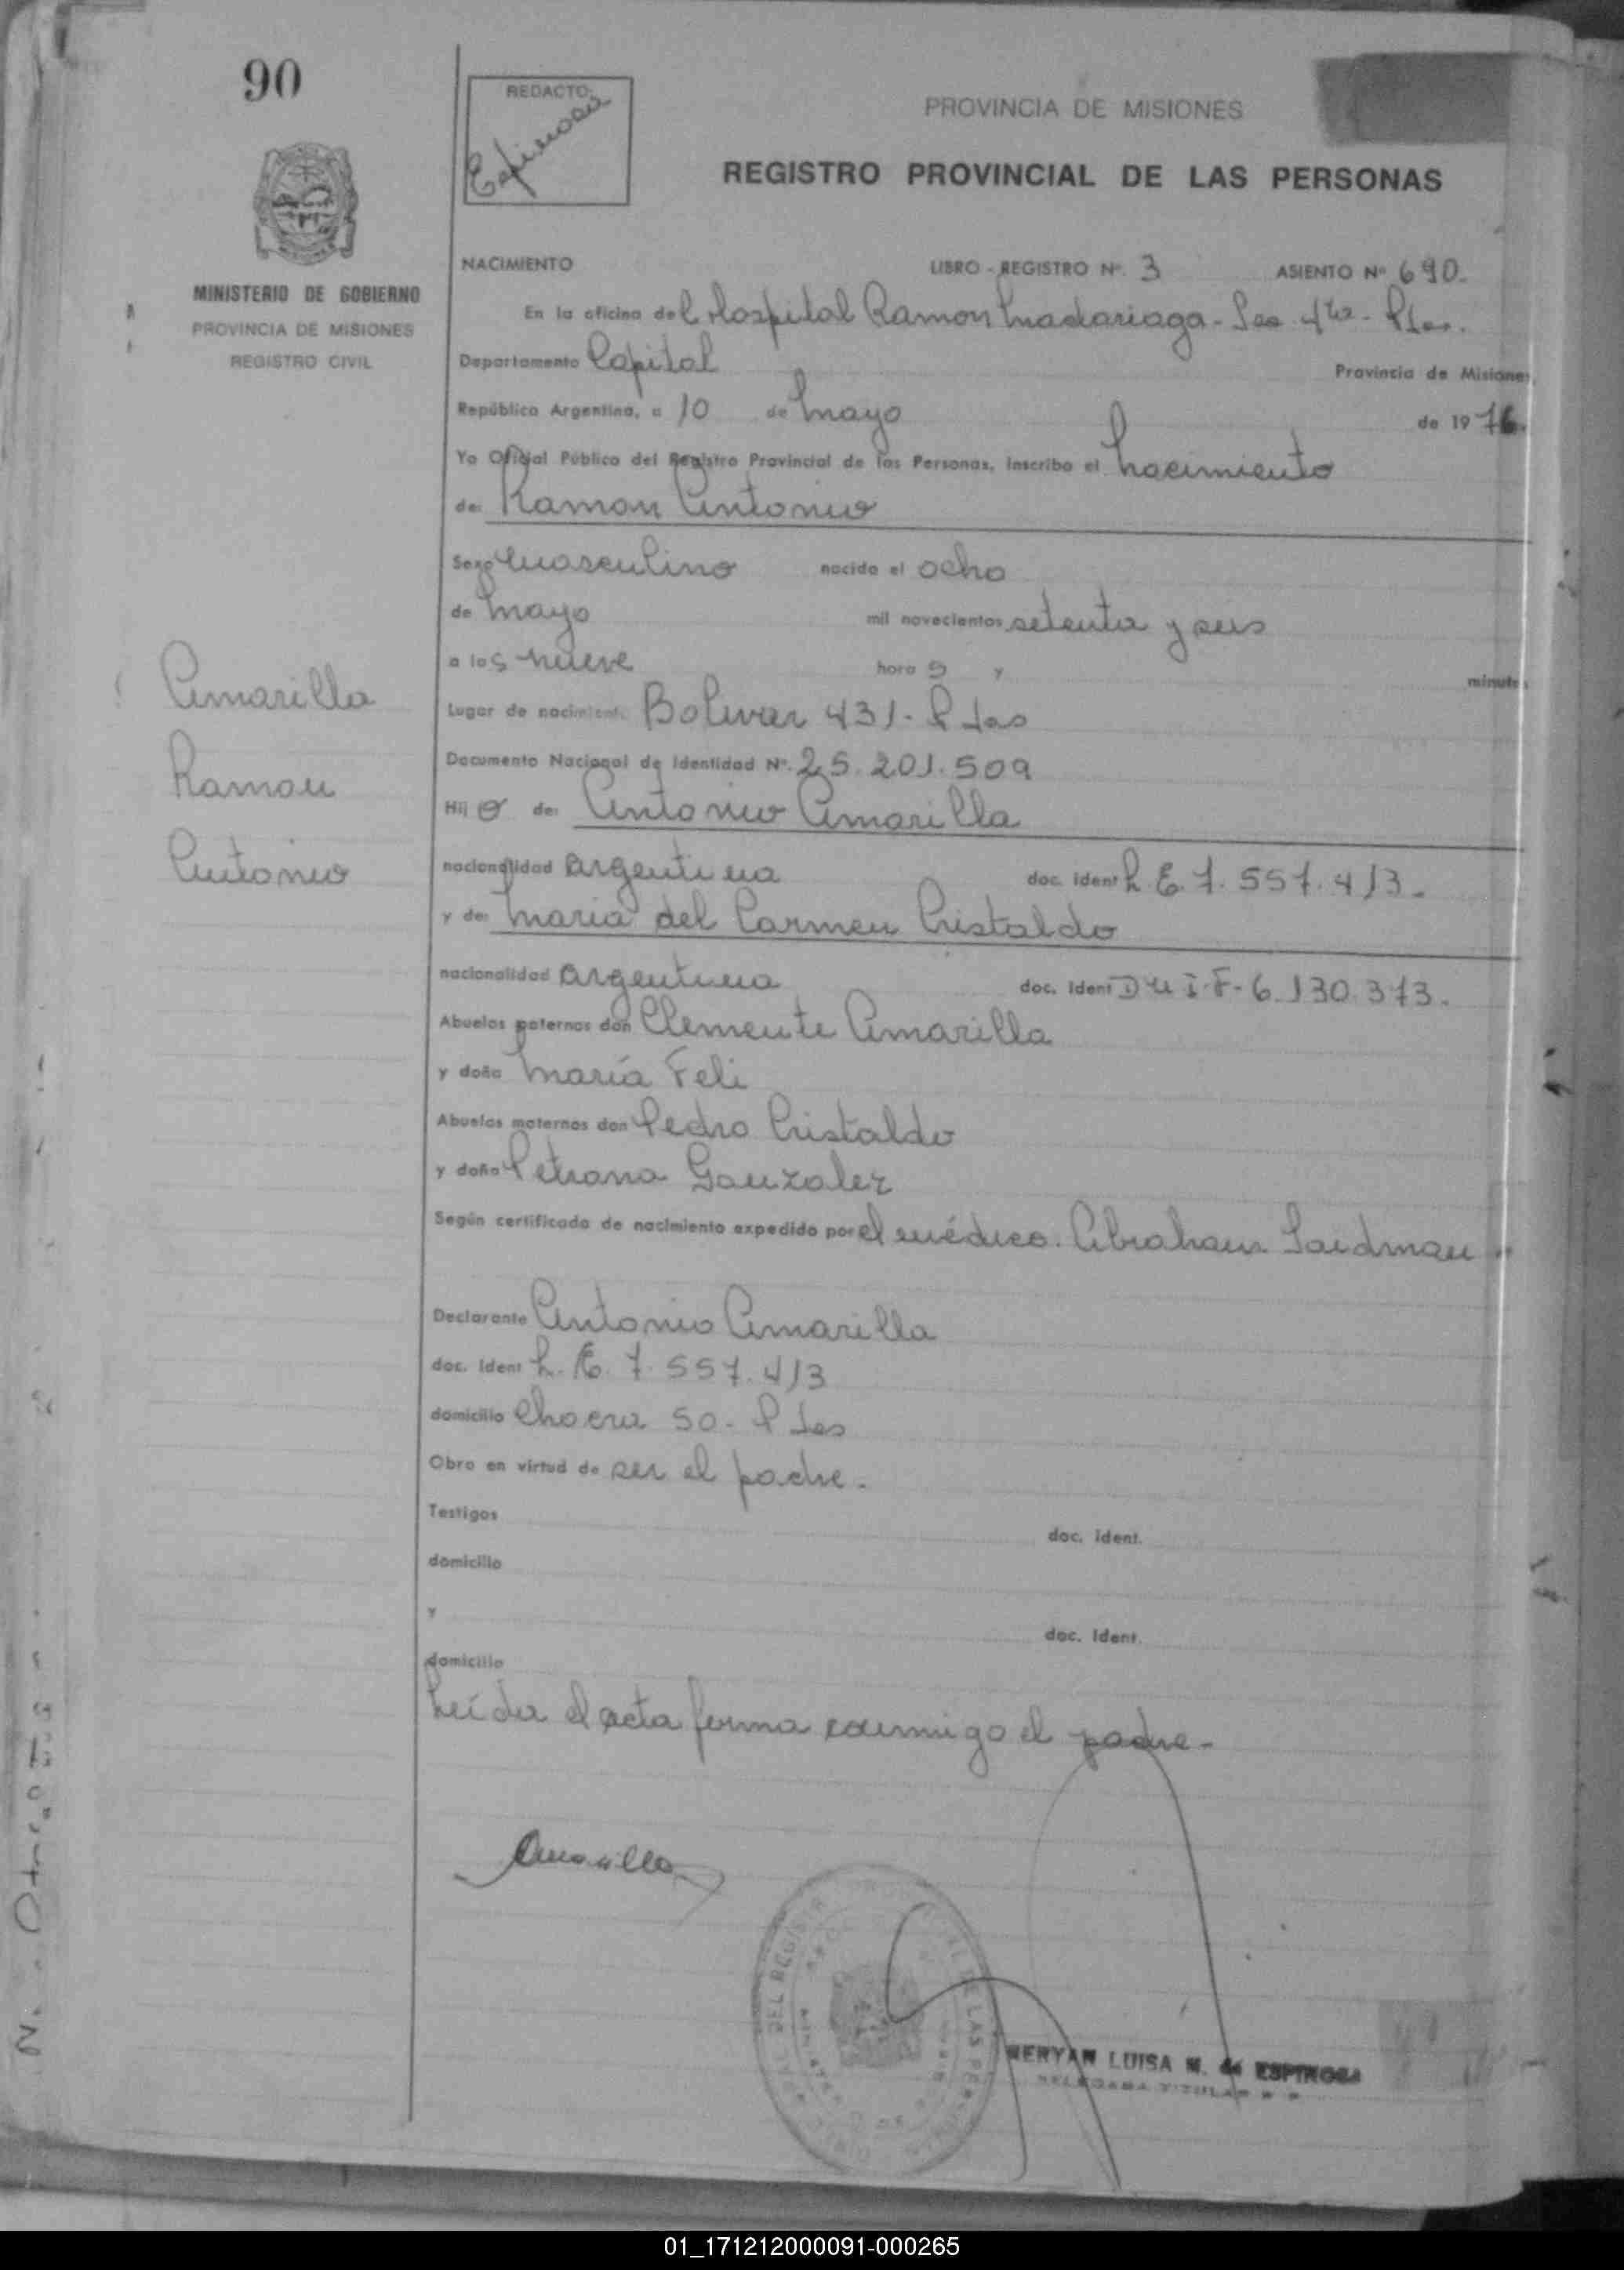 90
REDACTO:
Espinosa
PROVINCIA DE MISIONES
REGISTRO PROVINCIAL DE LAS PERSONAS
MINISTERIO DE GOBIERNO
PROVINCIA DE MISIONES
REGISTRO CIVIL
NACIMIENTO LIBRO - REGISTRO Nº. 3 ASIENTO Nº 690.
En la oficina del Hospital Ramon Madariaga - Sec 4ta - Pdas.
Departamento Capital Provincia de Misiones,
República Argentina, a 10 de Mayo de 1976.
Yo Oficial Público del Registro Provincial de las Personas, inscribo el nacimiento
de: Ramon Antonio
Sexo Masculino nacido el ocho
de Mayo mil novecientos setenta y seis
a las nueve horas y minutos
Lugar de nacimiento Bolivar 431 - Pdas
Documento Nacional de Identidad Nº. 25.201.509
Hijo de: Antonio Amarilla
nacionalidad argentina doc. ident L.E. 7.557.413.
y de: Maria del Carmen Cristaldo
nacionalidad argentina doc. ident DNI. F- 6.130.373.
Abuelos paternos don Clemente Amarilla
y doña María Feli
Abuelos maternos don Pedro Cristaldo
y doña Petrona Gonzalez
Según certificado de nacimiento expedido por el médico. Abraham Saidman
Declarante Antonio Amarilla
doc. ident L.E. 7.557.413
domicilio Chacra 50 - Pdas
Obra en virtud de ser el padre.
Testigos doc. ident.
domicilio
y doc. ident.
domicilio
Leída el acta firma conmigo el padre-
Amarilla
Amarilla
Ramon
Antonio
MERYAN LUISA M. de ESPINOSA
DELEGADA TITULAR
01_171212000091-000265